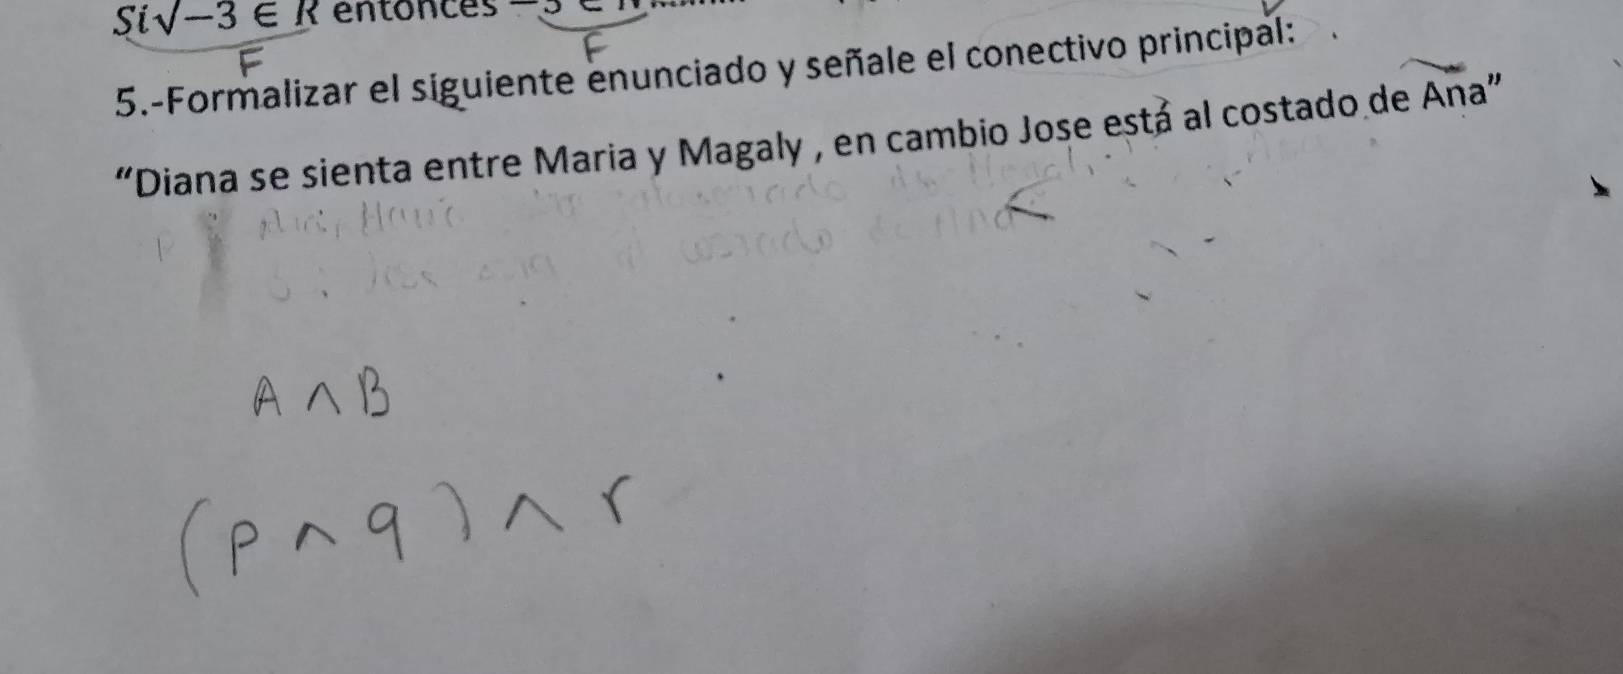 Si√−3 ∈ R entonces
F F
5.-Formalizar el siguiente enunciado y señale el conectivo principal:
"Diana se sienta entre Maria y Magaly , en cambio Jose está al costado de Ana"
costado de Ana
A ∧ B
(p ∧ q) ∧ r